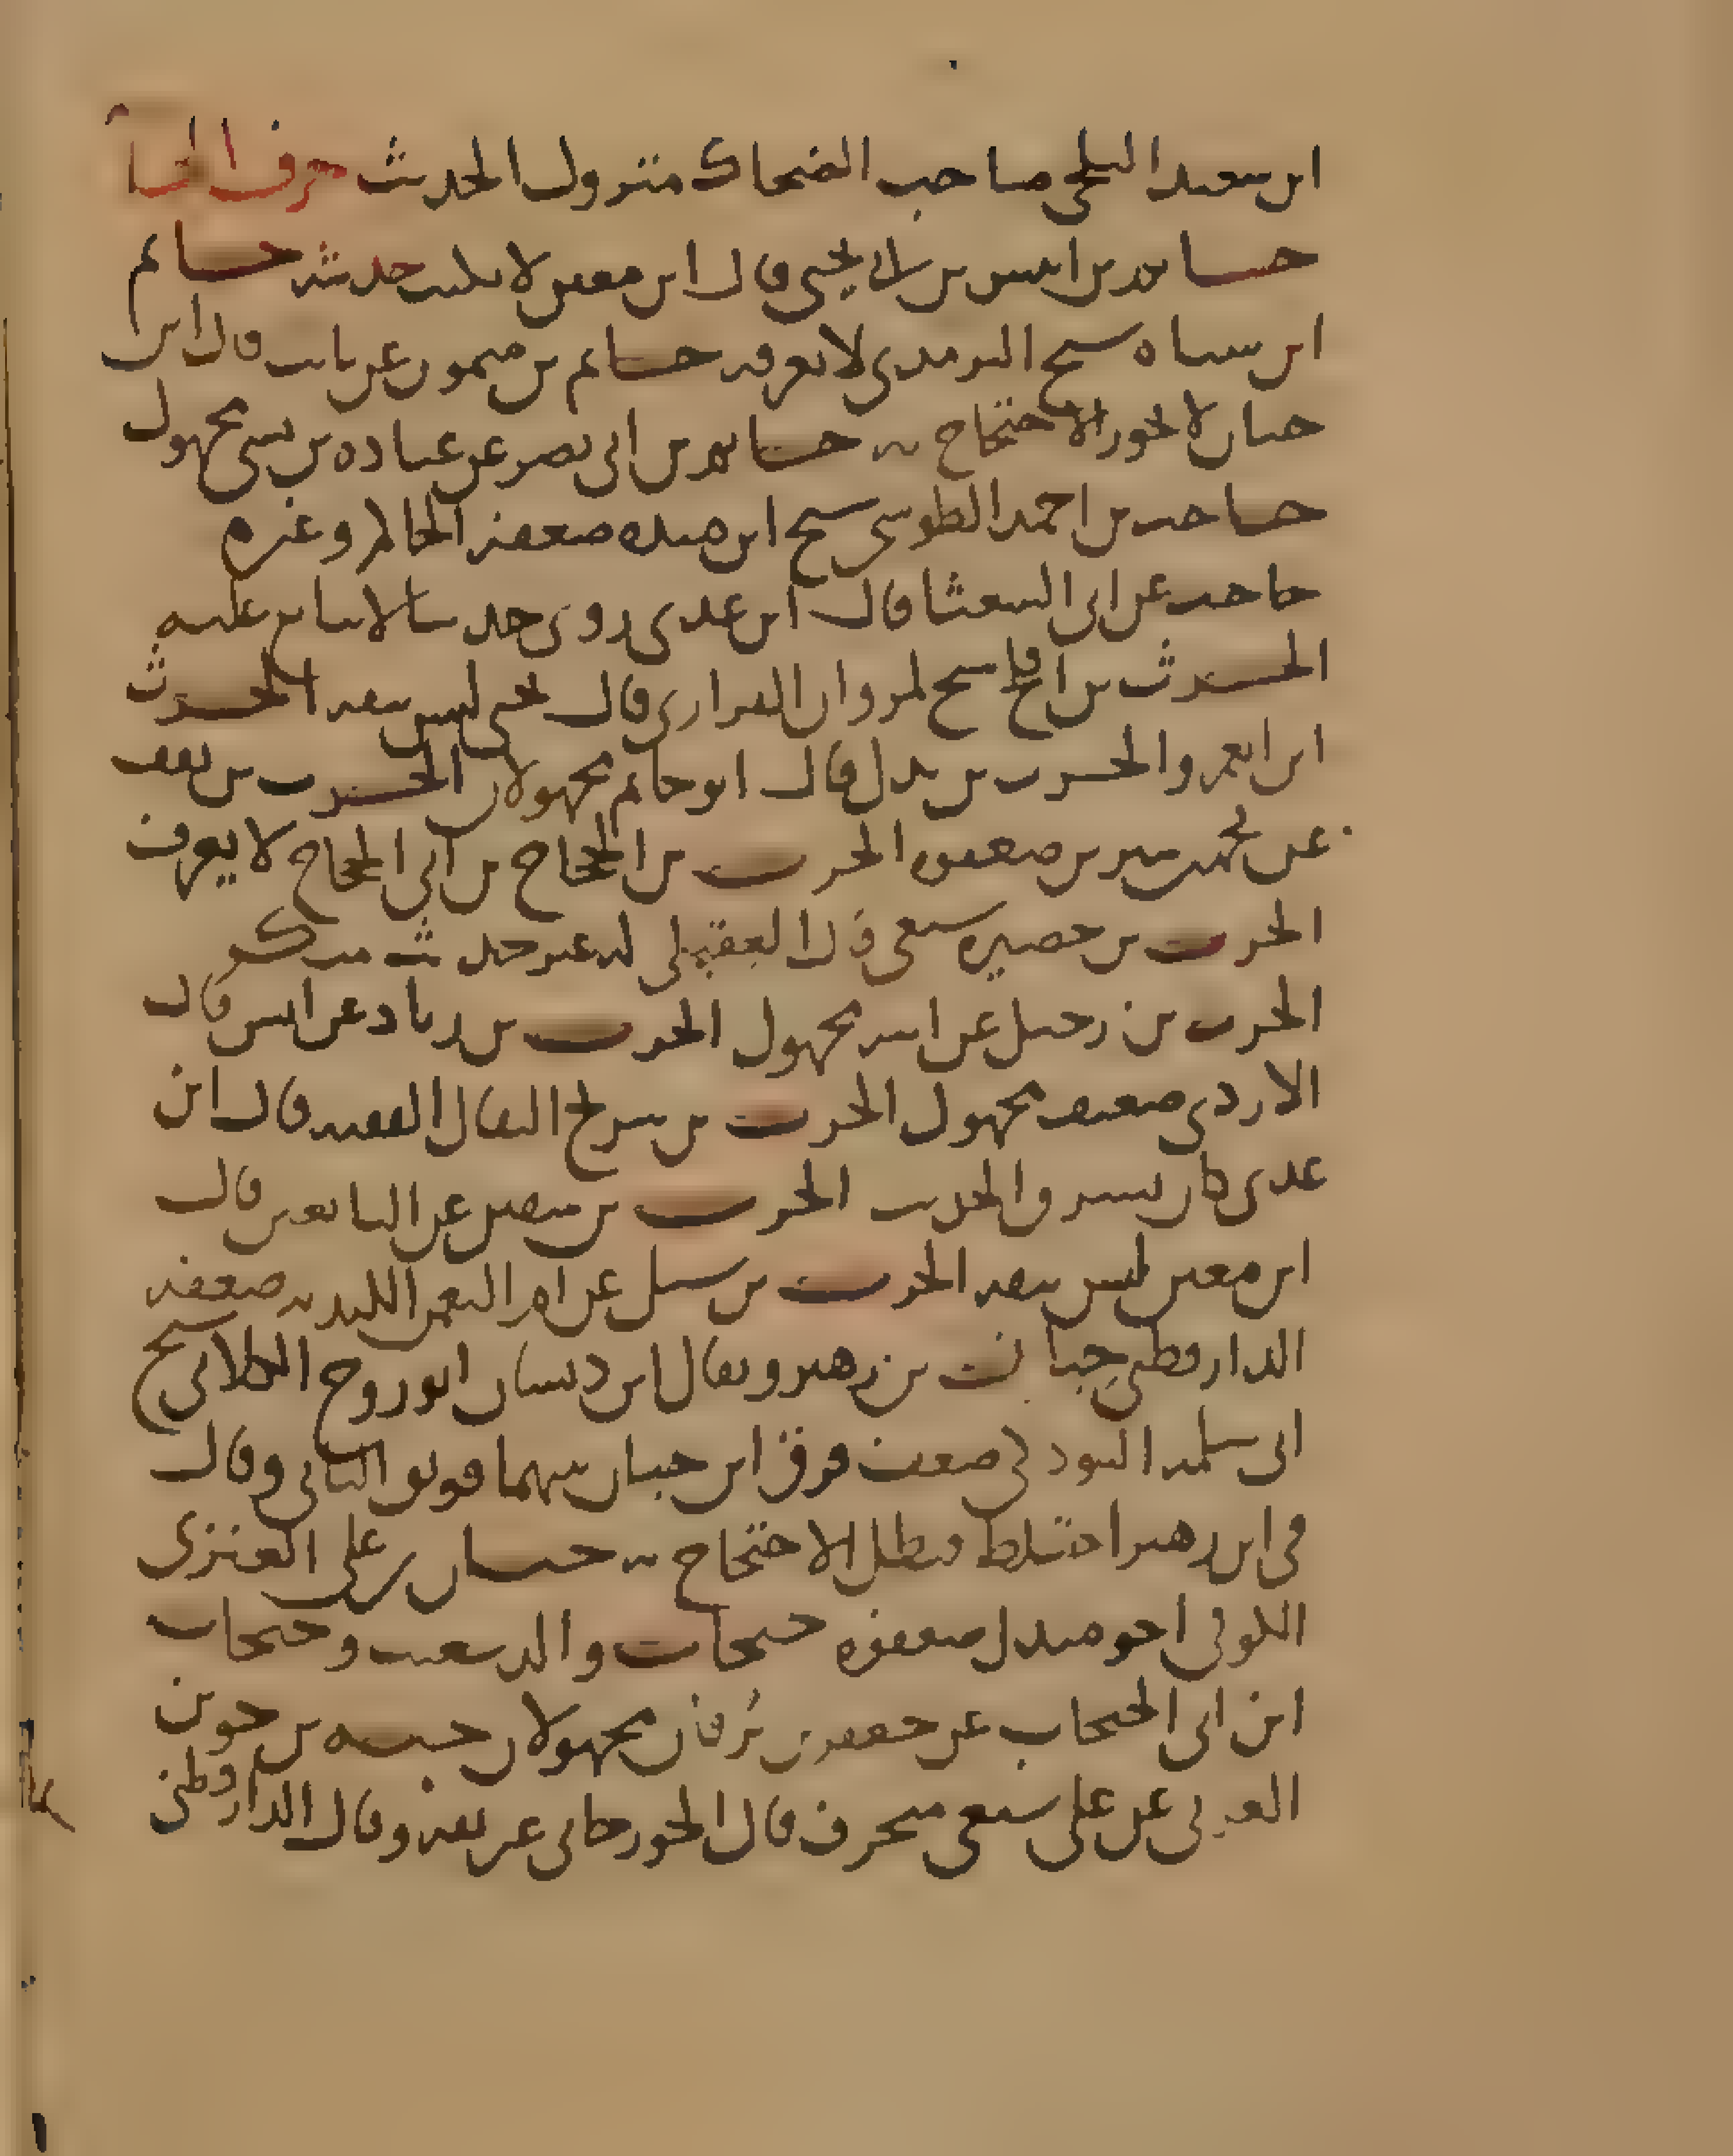 ابن سعيد البلخي صاحب الضحاك متروك الحديث حرف الحا
حامد بن ابن معين لا يكتب حديثه حاتم
ابن سياه شيخ الترمذي لا يعرف حاتم بن ميمون عن ثابت قال ابن
حبان لا يجوز الاحتجاج به حاتم بن ابي نصر عن عبادة بن نسي مجهول
حاجب بن احمد الطوسي شيخ ابن منده ضعفه الحاكم وغيره
حاجب عن ابي الشعثا قال ابن عدي روى حديثا لا يتابع عليه
الحرث بن افلح شيخ لمروان الفزاري قال يحيى ليس بثقه الحرث
ابن انعم والحرث بن بدل قال ابو حاتم مجهولان الحرث بن ثقف
عن محمد بن سيرين ضعفوه الحرث بن الحجاج بن ابي الحجاج لا يعرف
الحرث بن حصيره شيعي قال العقيلي له غير حديث منكر
الحرث بن رحيل عن ابيه مجهول الحرث بن زياد عن انس قال
الازدي ضعيف مجهول الحرث بن سريج النقال الفقيه قال ابن
عدي كان يسرق الحديث الحرث بن سفين عن التابعين قال
ابن معين ليس بثقه الحرث بن شبل عن ام النعمن الكنديه ضعفه
الدارقطني حبان بن زهير ويقال ابن يسار ابو روح الكلابي شيخ
ابي سلمه التبوذكي ضعف فرق ابن حبان بينهما فوثق الثاني وقال
في ابن زهير اختلط فبطل الاحتجاج به حبان بن علي العنزي
الكوفي اخو مندل ضعفوه حبحاب والد شعيب وحبحاب
ابن ابي الحبحاب عن جعفر بن برقان مجهولان حبه بن جوين
العرني عن علي شيعي منحرف قال الجوزجاني غير ثقه وقال الدارقطني